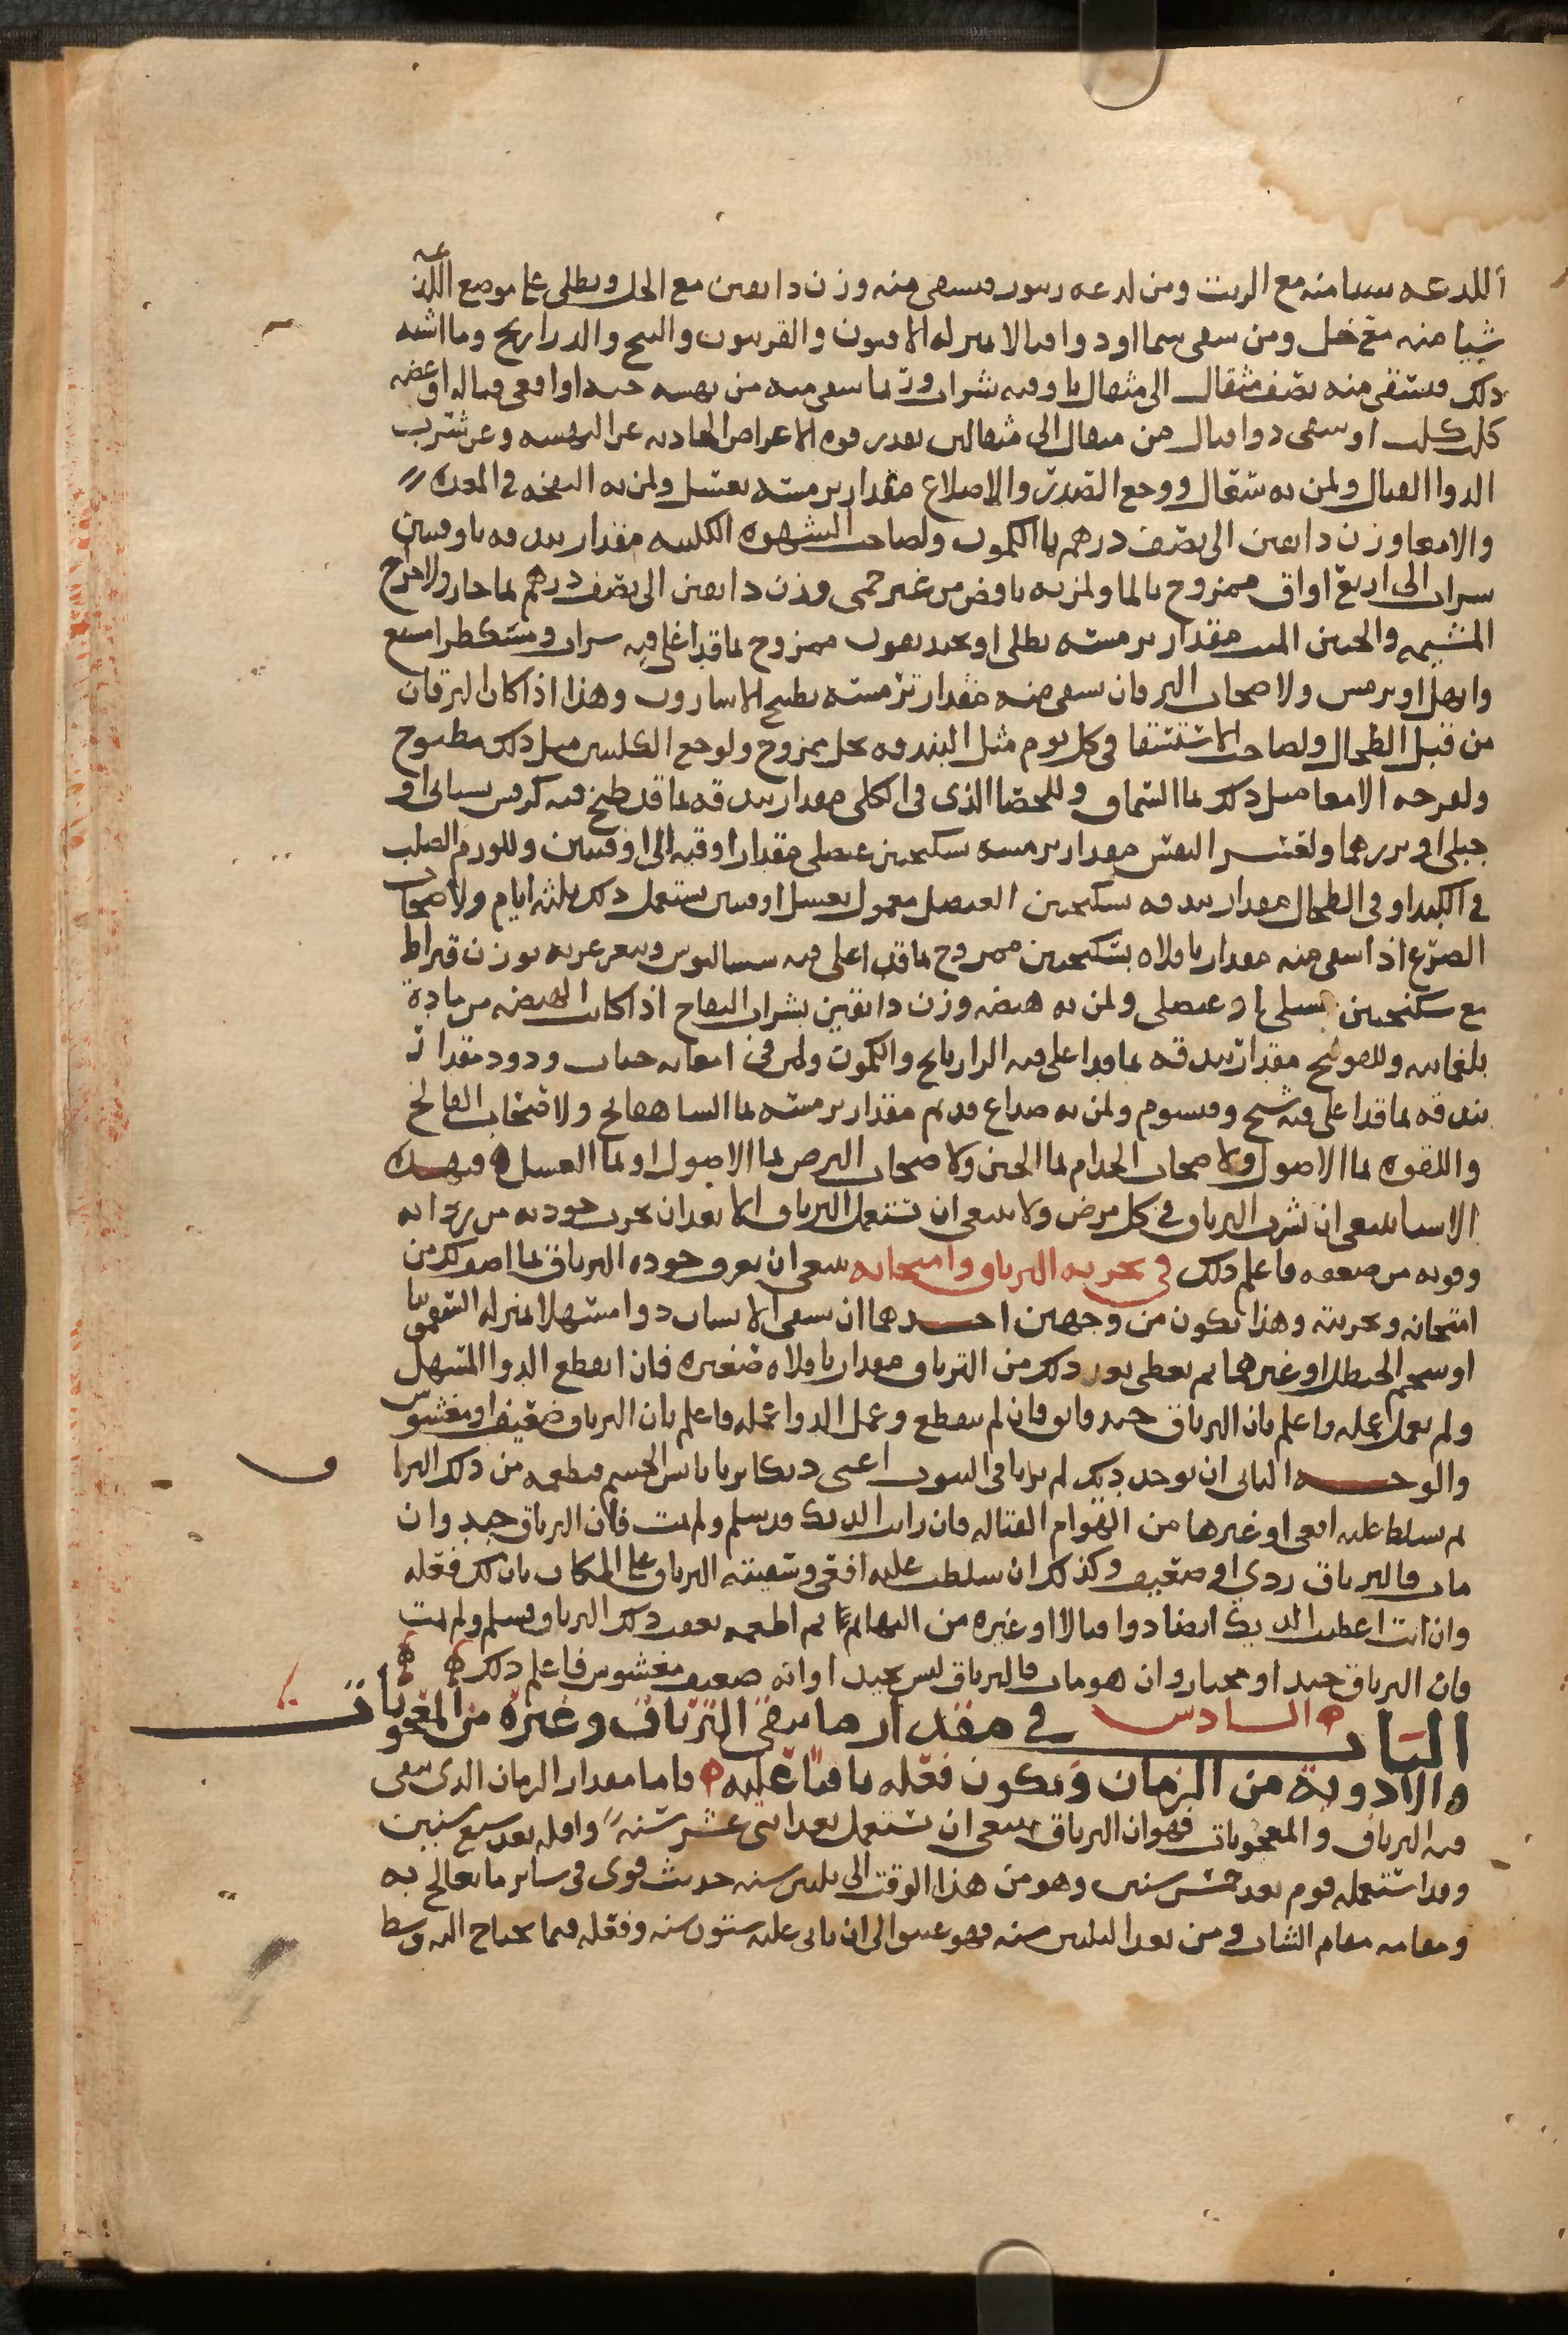 اللدعه شيا منه مع الزيت ومن لدعه زنبور فيسقى منه وزن دانقين مع الخل ويطلى على موضع اللدغه
شيا منه مع خل ومن سقى سما او دوا قتالا بمنزله الافيون والفربيون والبنج والدراريح وما اشبه
ذلك فيسقى منه نصف مثقال الى مثقال باوقيه شراب وربما سقى منه من نهسه حيه او افعى قتاله او عضه
كلب كلب او سقى دوا قتال من مثقال الى مثقالين بقدر قوه الاعراض الحادثه عن النهسه وعن شرب
الدوا القتال ولمن به سعال ووجع الصدر والاضلاع مقدار ترمسه بعسل ولمن به النفخه في المعده
والامعا وزن دانقين الى نصف درهم بما الكمون ولصاحب الشهوه الكلبيه مقدار بندقه باوقيتين
شراب الى اربع اواق ممزوج بالما ولمن به نافض من غير حمى وزن دانقين الى نصف درهم بما حار ولاخراج
المشيمه والجنين الميت مقدار ترمسه بطلى او بجنديقون ممزوج بما قد اغلي فيه سراب ومشكطرامشيع
وابهل او ترمس ولاصحاب اليرقان يسقى منه مقدار ترمسه بطبيخ الاسارون وهذا اذا كان اليرقان
من قبل الطحال ولصاحب الاستسقا في كل يوم مثل البندقه بخل ممزوج ولوجع الكليتين مثل ذلك مطبوخ
ولقرحه الامعا مثل ذلك بما السماق وللحصا الذي في الكلى مقدار بندقه بما قد طبخ فيه كرفس بستاني او
جبلي او بزرهما ولعسر النفس مقدار ترمسه سكنجبين عنصلي مقدار اوقيه الى اوقيتين وللورم الصلب
في الكبد او في الطحال مقدار بندقه سكنجبين العنصل معمول بعسل اوقيتين يستعمل ذلك ثلثه ايام ولاصحاب
الصرع اذا سقى منه مقدار باقلاه بسكنجبين ممزوج بما قد اغلي فيه سساليوس وسعر عربه بوزن قيراط
مع سكنجبين عسلي او عنصلي ولمن به هيضه وزن دانقين بشراب التفاح اذا كانت الهيضه من مادة
بلغمانيه وللقولنج مقدار بندقه بما قد اغلي فيه الرازيانج والكمون ولمن في امعايه حيات ودود مقدار
بندقه بما قد اغلي فيه شيح وقيسوم ولمن به صداع قديم مقدار ترمسه بما الساهفالج ولاصحاب الفالج
واللقوه بما الاصول ولاصحاب الجذام بما الجبن ولاصحاب البرص بما الاصول او بما العسل فبهذه
الاشيا ينبغي ان يشرب الترياق في كل مرض ولا ينبغي ان تستعمل الترياق الا بعد ان تجرب جودته من رداته
وقوته من ضعفه فاعلم ذلك في تجربه الترياق وامتحانه ينبغي ان تعرف جوده الترياق بما اصف لك من
امتحانه وتجربته وهذا يكون من وجهين احدهما ان يسقى الانسان دوا مسهلا بمنزله السقمونيا
او شحم الحنظل او غيرهما ثم يعطى بعد ذلك من الترياق مقدار باقلاه صغيره فان انقطع الدوا المسهل
ولم يعمل عمله فاعلم بان الترياق جيد فايق فان لم ينقطع وعمل الدوا عمله فاعلم بان الترياق ضعيف او مغشوش
والوجه الثاني ان يوخذ ديك لم يربا في البيوت اعني ديكا بريا يابس الجسم فيطعمه من ذلك التريا ق
ثم يسلط عليه افعى او غيرها من الهوام القتاله فان رايت الديك قد سلم ولم يمت فان الترياق جيد وان
مات فالترياق ردي او ضعيف وكذلك ان سلطت عليه افعى وسقيته الترياق على المكان بان لك فعله
وان انت اعطيت الديك ايضا دوا قتالا او غيره من البهائم ثم اطعمه بعقب ذلك الترياق فسلم ولم يمت
فان الترياق جيد او مختار وان هو مات فالترياق ليس بجيد او انه ضعيف مغشوش فاعلم ذلك
الباب السادس في مقدار ما يبقى الترياق وغيره من المعجونات
والادوية من الزمان ويكون فعله باقيا عليه فاما مقدار الزمان الذي يبقى
فيه الترياق والمعجونات فهو ان الترياق ينبغي ان تستعمل بعد اثنى عشر سنه واقله بعد سبع سنين
وقد استعمله قوم بعد خمس سنين وهو من هذا الوقت الى ثلثين سنه حديث قوي في ساير ما يعالج به
ومقامه مقام الشاب ومن بعد الثلثين سنه فهو عتيق الى ان ياتي عليه ستون سنه وفعله فيما يحتاج اليه وسط